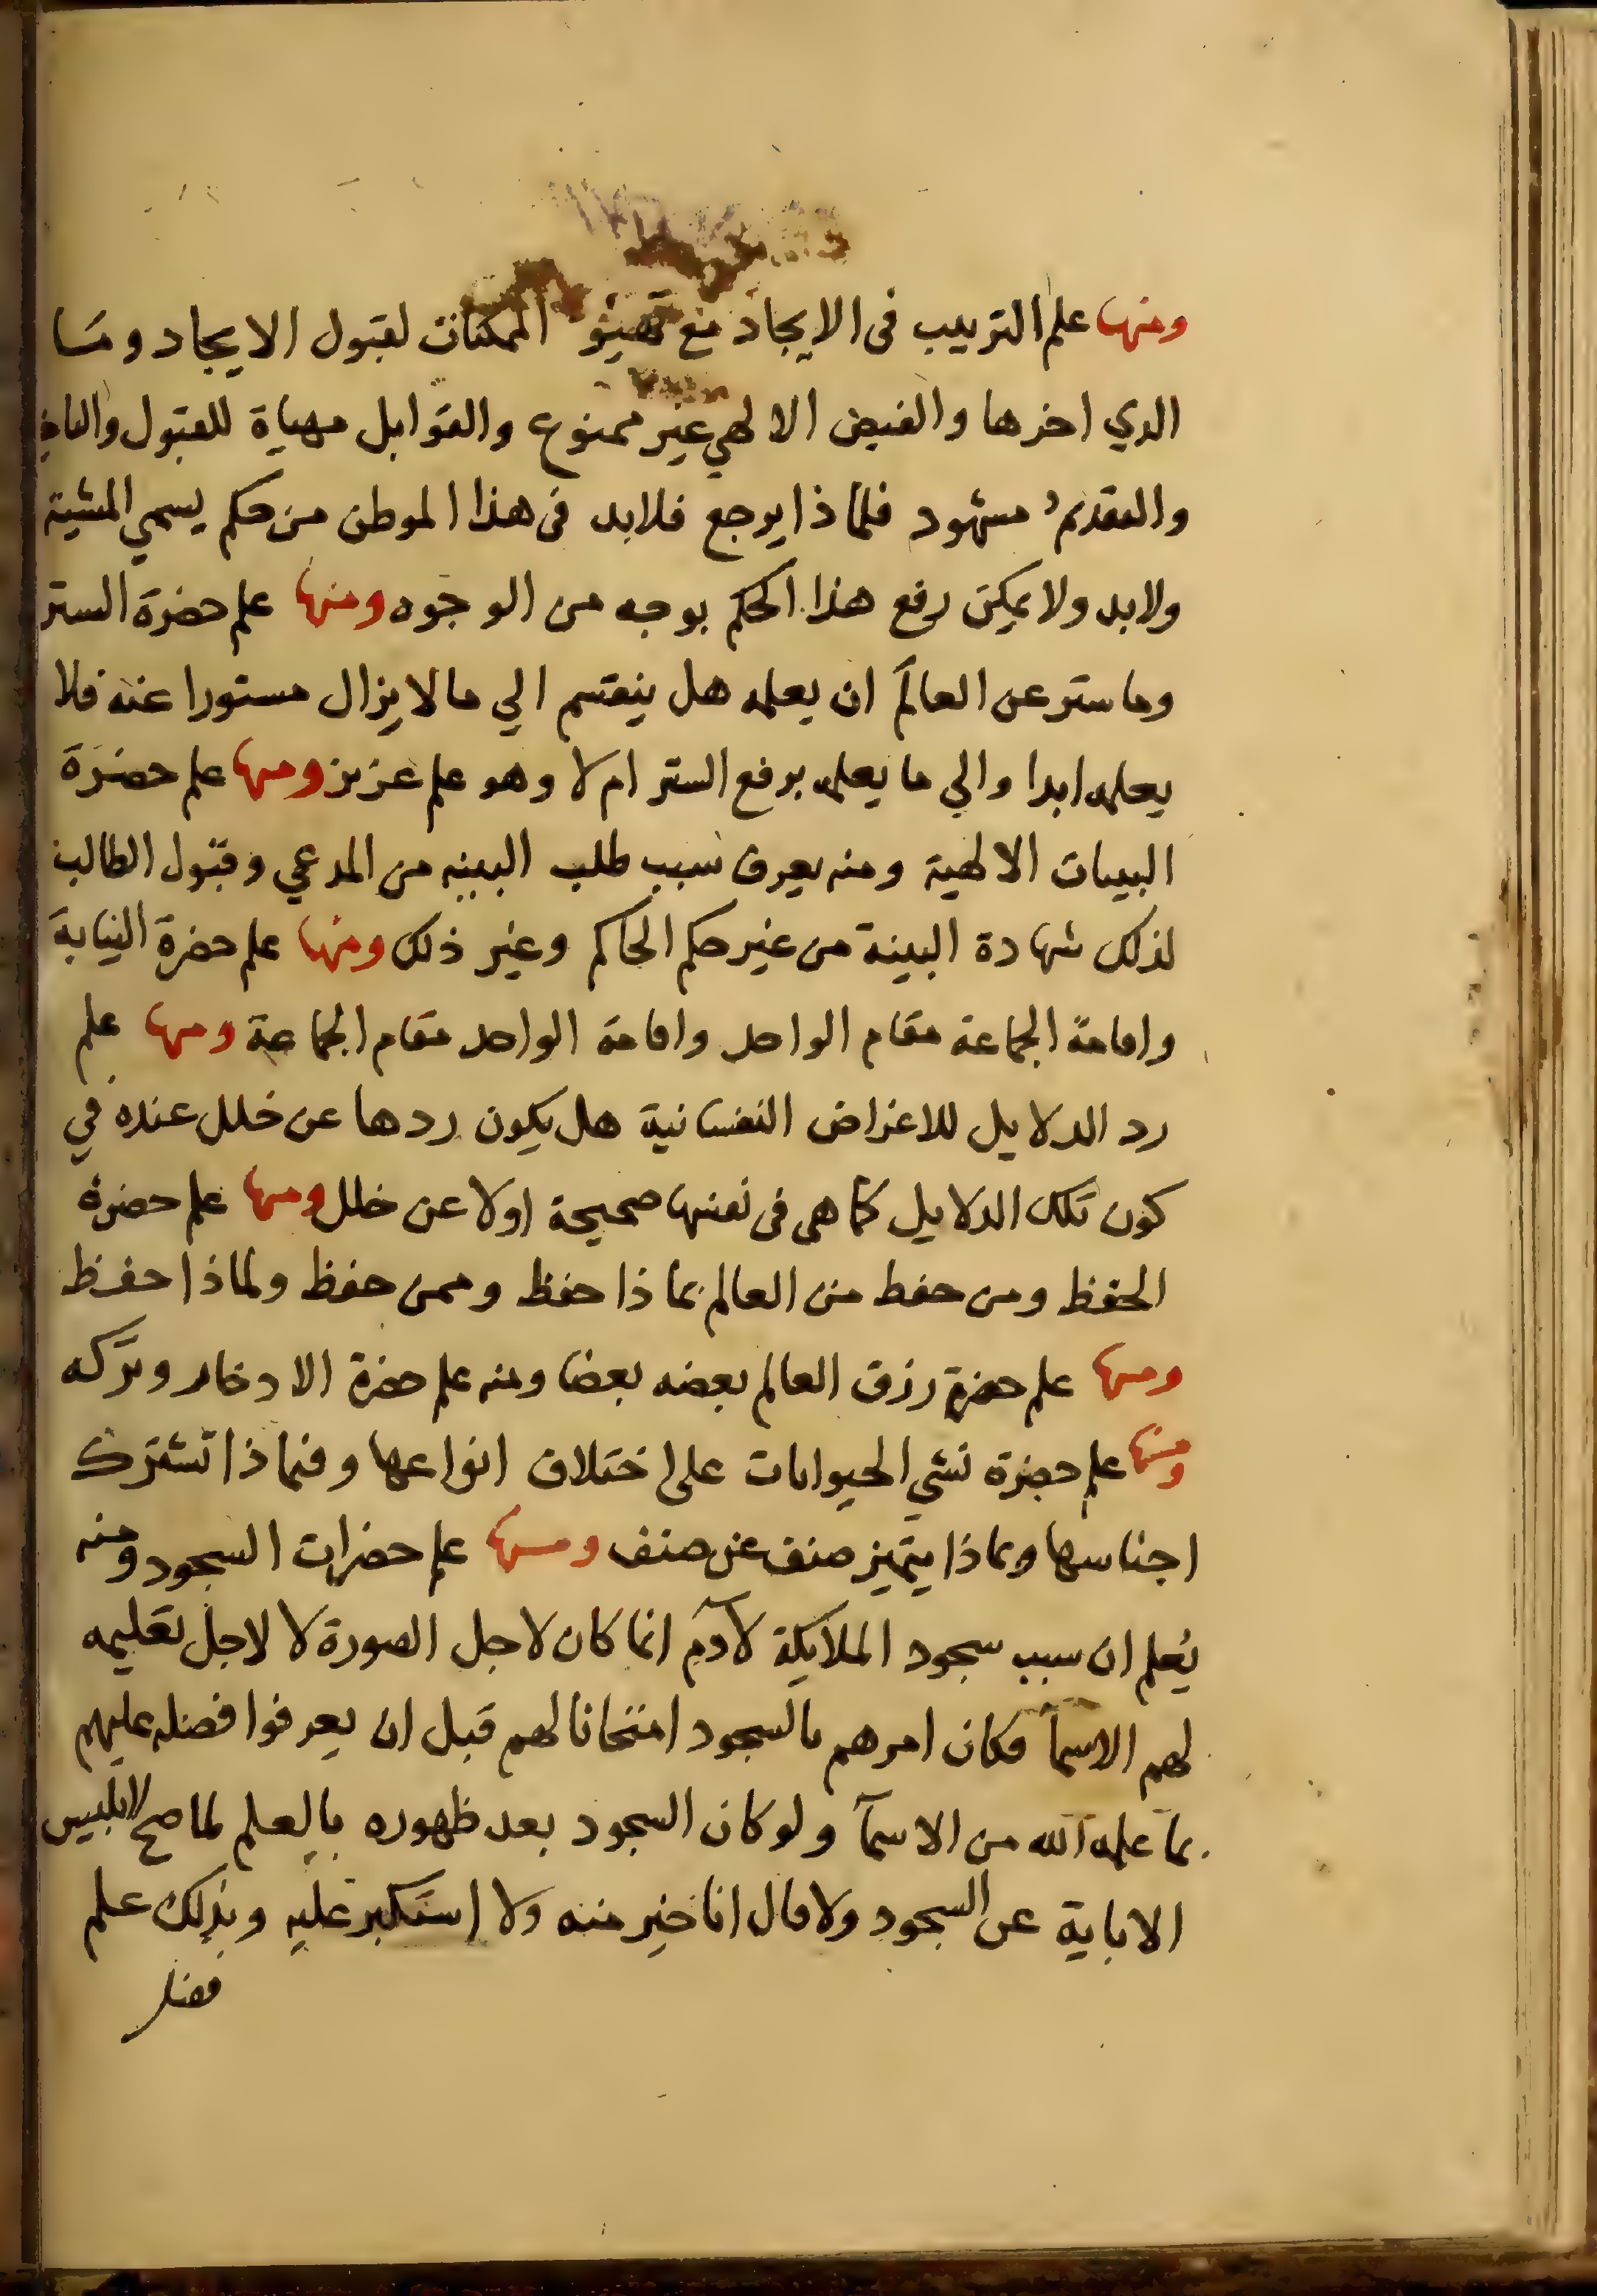 ومنها علم الترتيب فى الايجاد مع تهيؤ الممكنات لقبول الايجاد وما
الذي اخرها والفيض الالهي غير ممنوع والقوابل مهياة للقبول والتاخير
والتقديم مشهود فلماذا يرجع فلابد فى هذا الموطن من حكم يسمي المشية
ولابد ولا يمكن رفع هذا الحكم بوجه من الوجوه ومنها علم حضرة الستر
وما ستر عن العالم ان يعلمه هل ينقسم الي ما لا يزال مستورا عنه فلا
يعلمه ابدا والي ما يعلمه برفع الستر ام لا وهو علم عزيز ومنها علم حضرة
البينات الالهية ومنه يعرف سبب طلب البينه من المدعي وقبول الطالب
لذلك شهادة البينة من غير حكم الحاكم وغير ذلك ومنها علم حضرة النيابة
واقامة الجماعة مقام الواحد واقامة الواحد مقام الجماعة ومنها علم
رد الدلايل للاغراض النفسانية هل يكون ردها عن خلل عنده في
كون تلك الدلايل كما هى فى نفسها صحيحة اولا عن خلل ومنها علم حضرة
الحفظ ومن حفظ من العالم بماذا حفظ وممن حفظ ولماذا حفظ
ومنها علم حضرة رزق العالم بعضه بعضا ومنه علم حضرة الادخار وتركه
ومنها علم حضرة نشي الحيوانات على اختلاف انواعها وفيماذا تشترك
اجناسها وبماذا يتميز صنف عن صنف ومنها علم حضرات السجود ومنه
يعلم ان سبب سجود الملايكة لآدم انما كان لاجل الصورة لا لاجل تعليمه
لهم الاسمآ فكان امرهم بالسجود امتحانا لهم قبل ان يعرفوا فضله عليهم
بما علمه الله من الاسمآ ولو كان السجود بعد ظهوره بالعلم لما صح لابليس
الاباية عن السجود ولا قال انا خير منه ولا استكبر عليه وبذلك علم
فضله